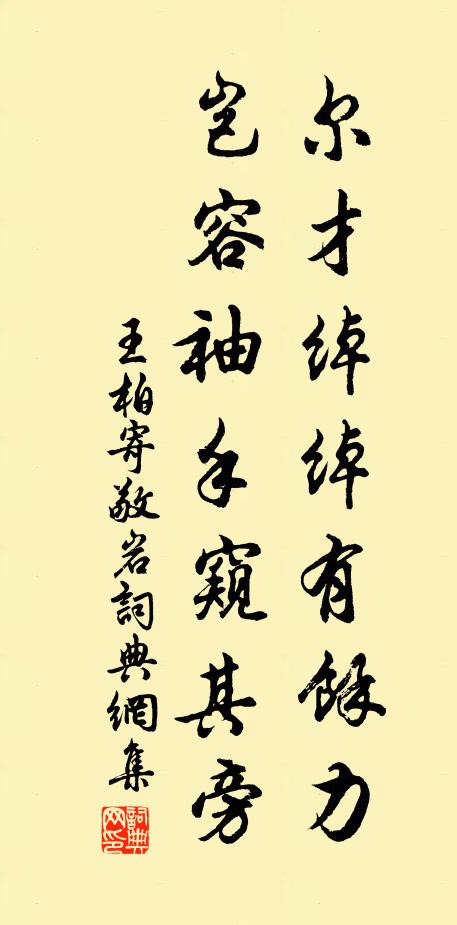 尔才绰绰有馀力
岂容袖手窥其旁
王柏寄敬岩詞典網集
詞典网印